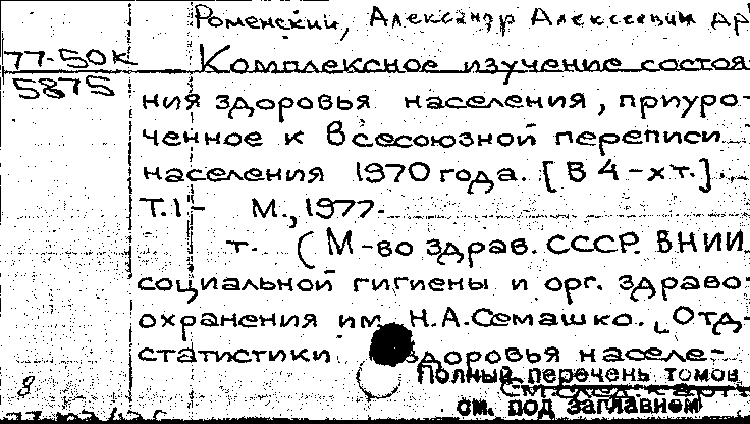 Роменский, Александр Алексеевич др
77-50к Комплексное изучение состоя-
5875
ния здоровья населения, приуро-
ченное к Всесоюзной переписи
населения 1970 года. [В 4-х т.].
Т.1- М., 1977-
т. (М-во здрав. СССР. ВНИИ
социальной гигиены и орг. здраво-
охранения им. Н.А.Семашко. Отд-
статистики здоровья населе-
8 Полный перечень томов
см. след. карт
см. под заглавием